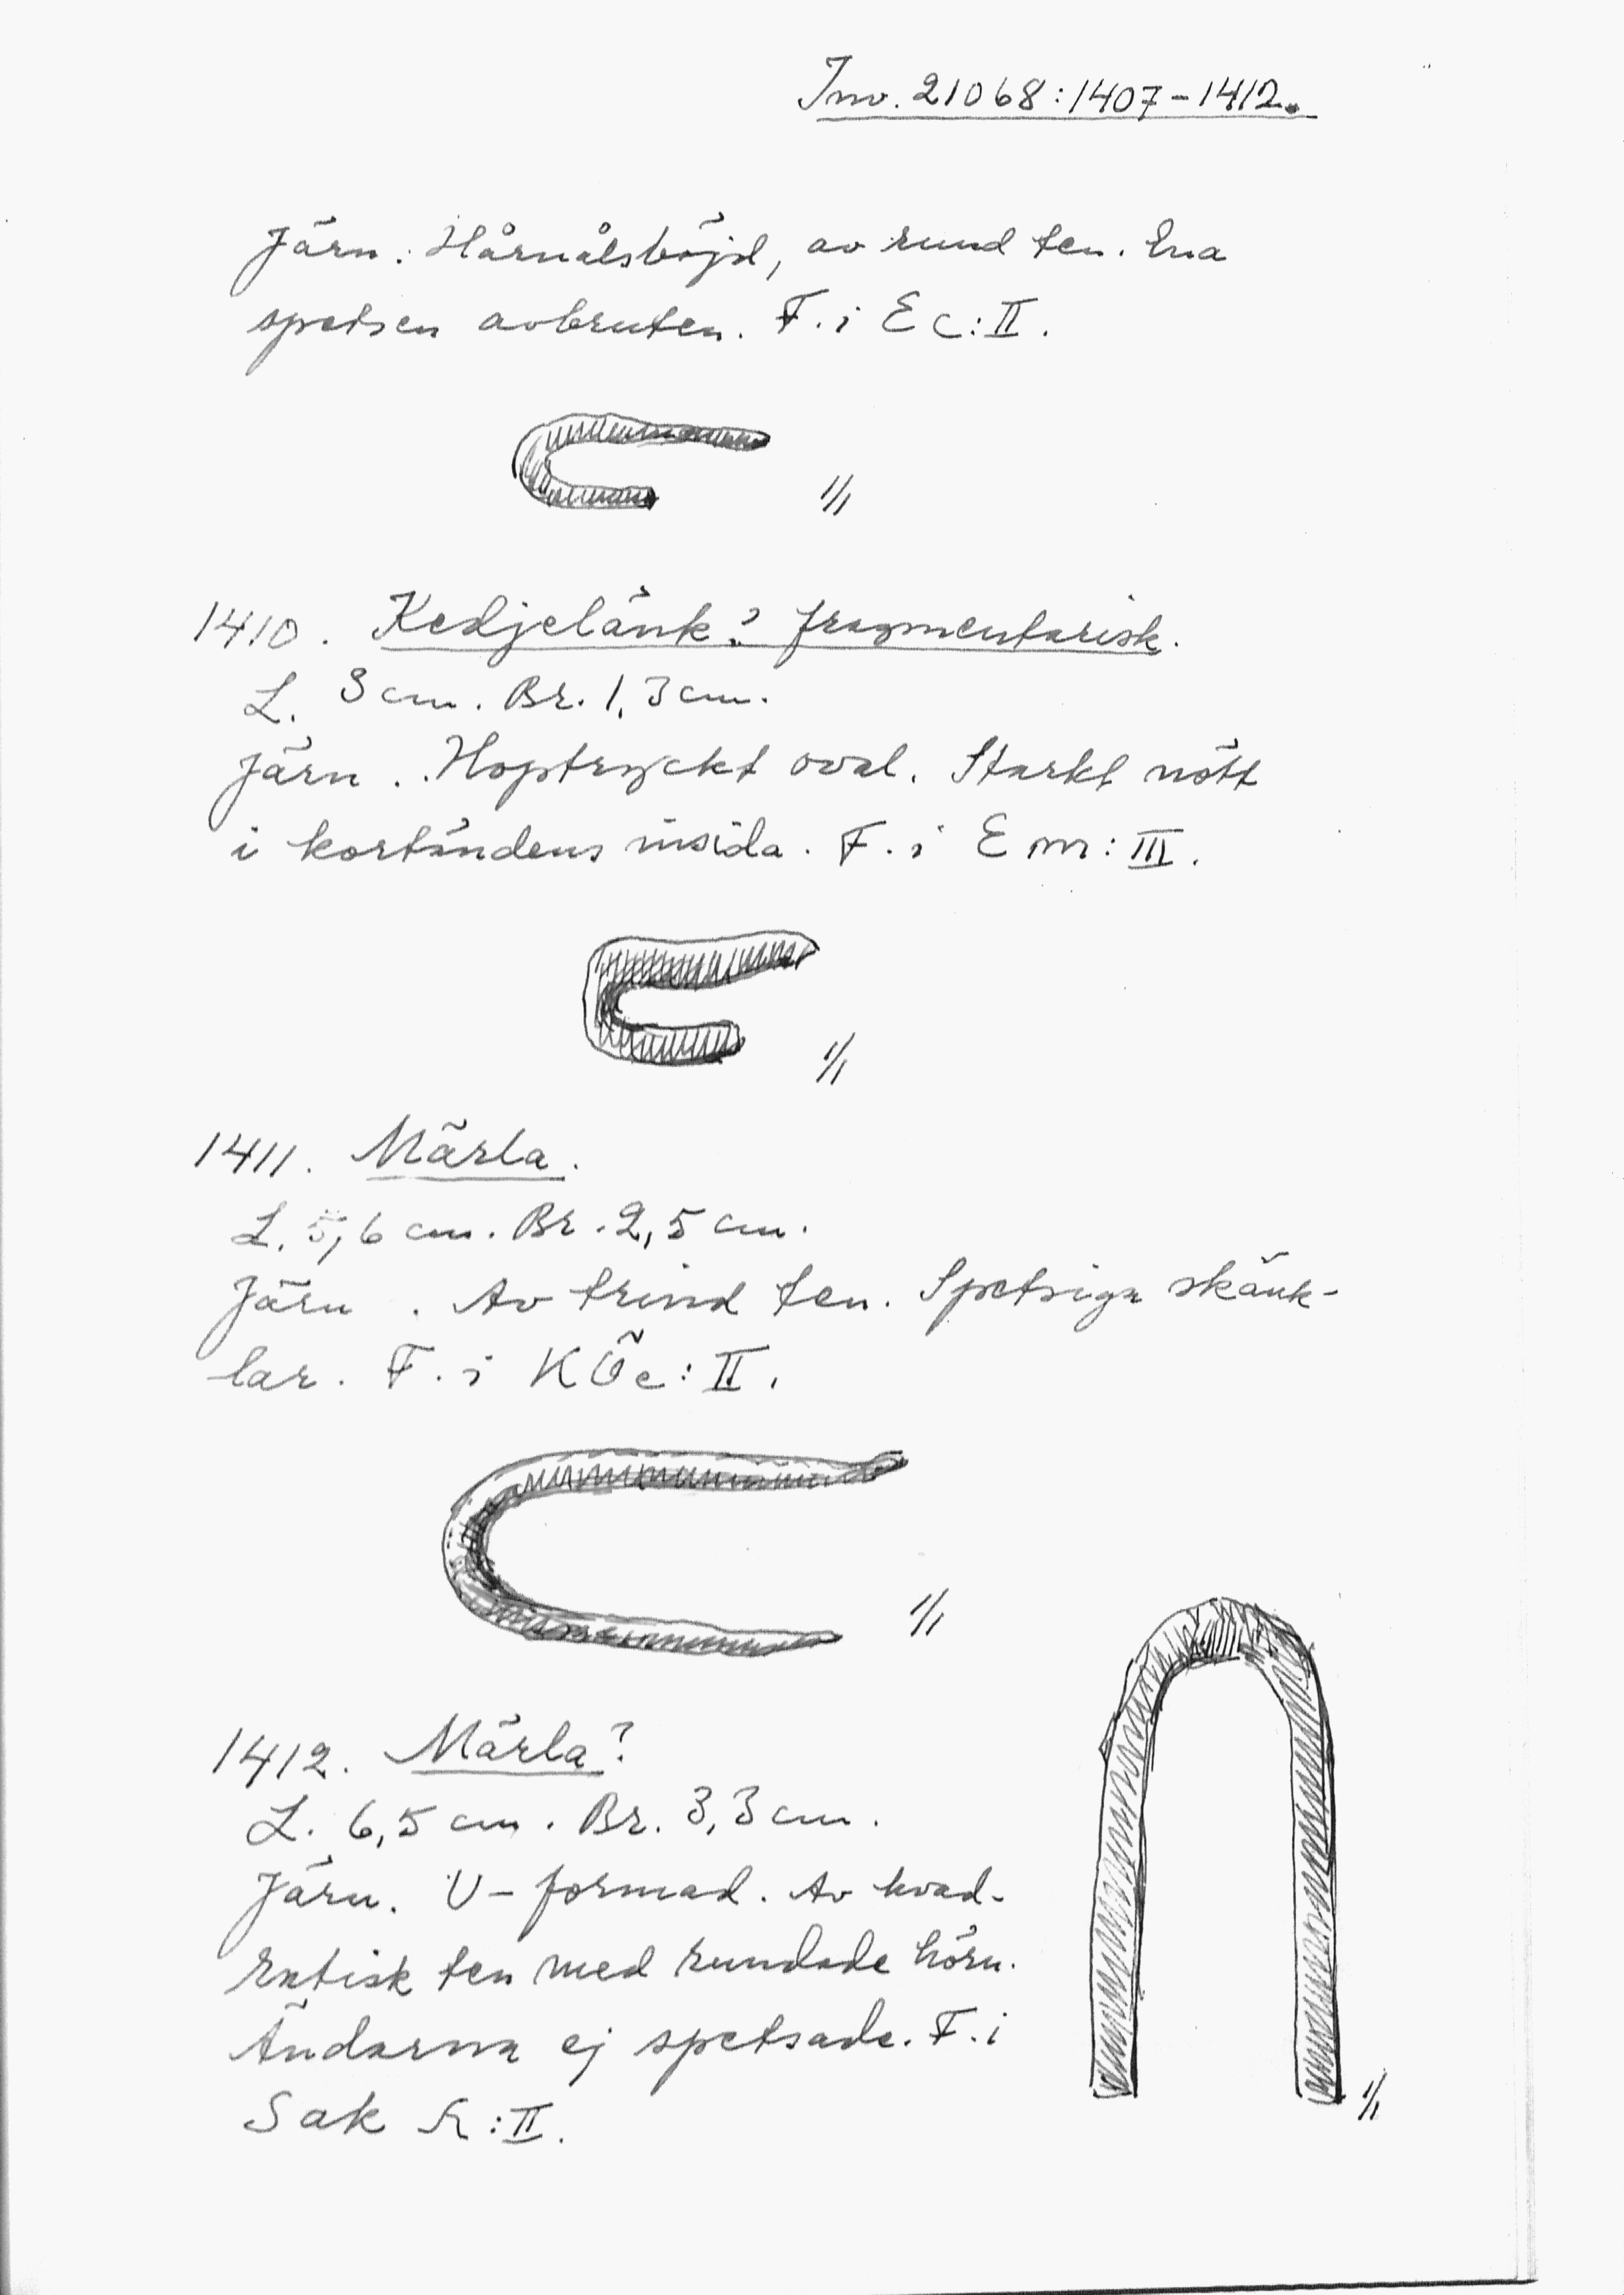 Inv. 21068:1407-1412.
Järn. Hårnålsböjd, av rund ten. Ena
spetsen avbruten. F. i E c:II.
1/1
1410. Kedjelänk? fragmentarisk.
L. 3 cm. Br. 1,3 cm.
Järn. Hoptryckt oval. Starkt nött
i kortändens insida. F. i E m:III.
1/1
1411. Märla.
L. 5,6 cm. Br. 2,5 cm.
Järn. Av trind ten. Spetsiga skänk-
lar. F. i KÖe:II.
1/1
1412. Märla?
L. 6,5 cm. Br. 3,3 cm.
Järn. U-formad. Av kvad-
ratisk ten med rundade hörn.
Ändarna ej spetsade. F. i
Sak :II.
1/1